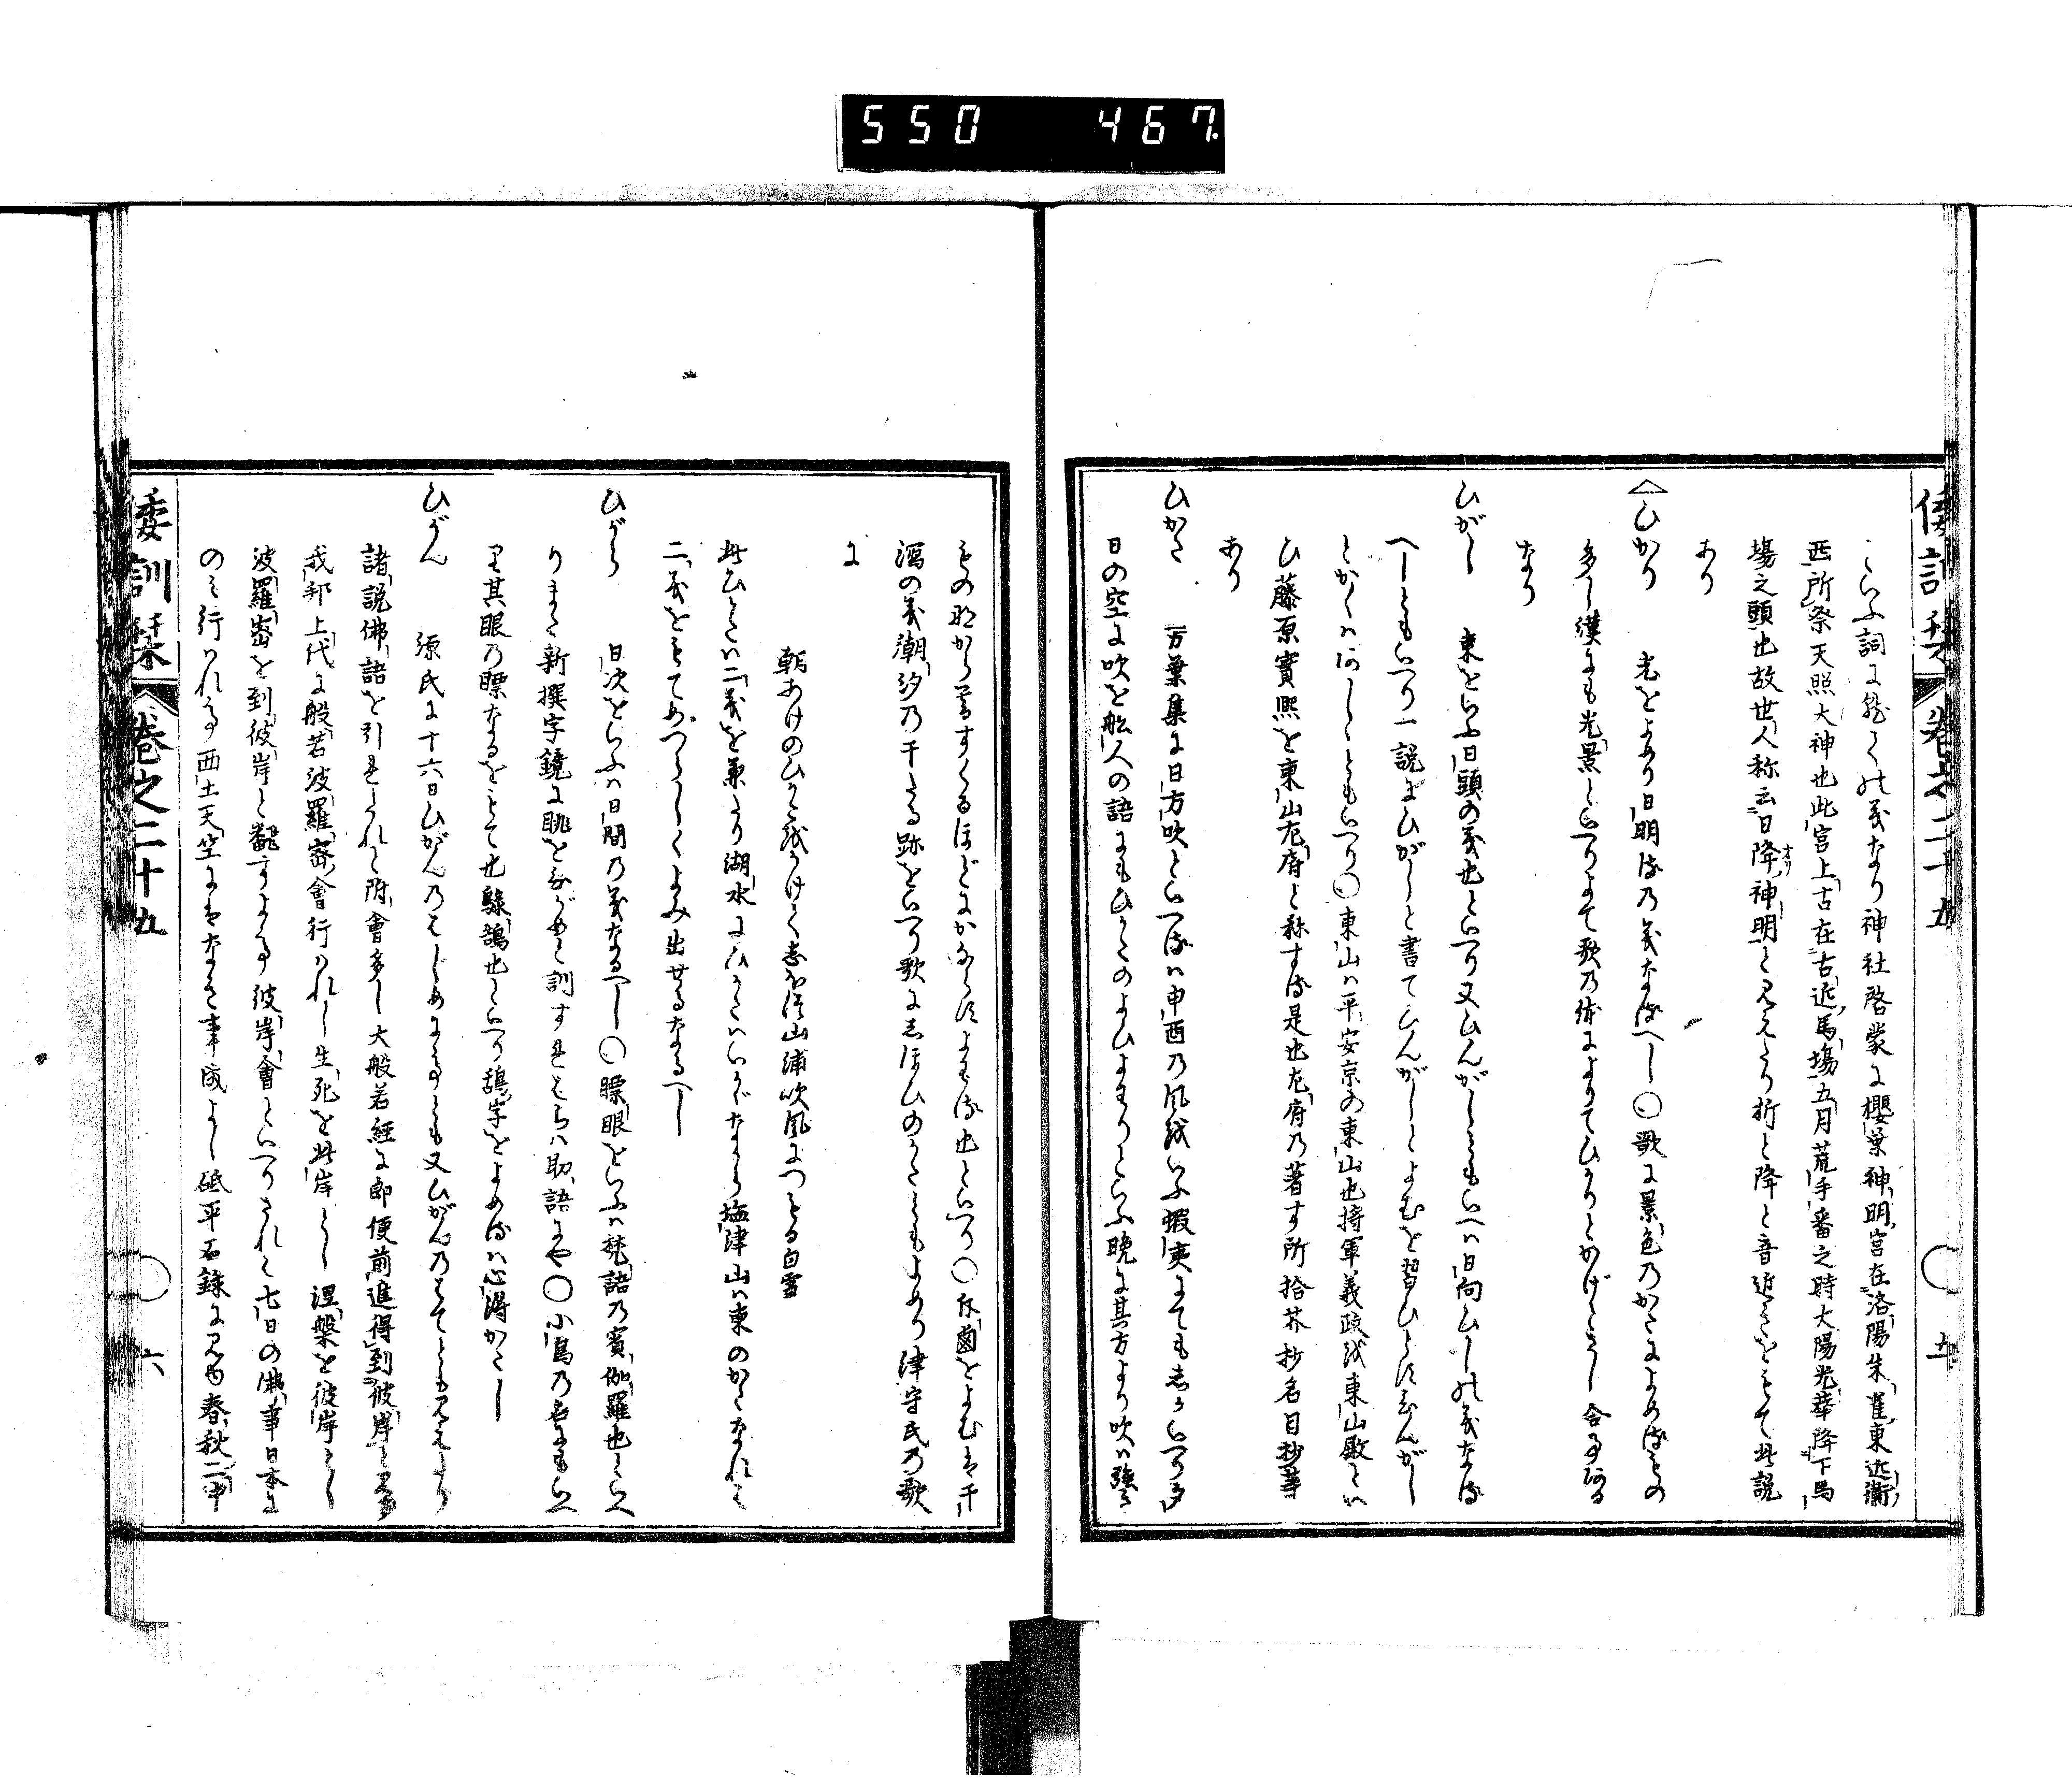 550 467
倭訓栞 卷之二十五 ○ 五
といふ詞に就ての義なり神社啓蒙に櫻葉神明宮在洛陽朱雀東近衞
西所祭天照大神也此宮上古在右近馬塲五月荒手番之時大陽光華降下馬
塲之頭也故世人称云日降神明と見えたり折と降と音近きをもて此説
あり
△ひかり 光をよめり日明るの義なるへし○歌に景色のかたによめるもの
多し漢にも光景といへりよて歌の体によりてひかりとかげとさし合事ある
なり
ひがし 東をいふ日頭の義也といへり又ひんがしともいへは日向ひしの義なる
へしともいへり一説にひがしと書てひんがしとよむを習ひとすひんがし
とかくはわろしともいへり○東山は平安京の東山也將軍義政を東山殿とい
ひ藤原實熙を東山左府と称する是也左府の著す所拾芥抄名目抄等
あり
ひかた 万葉集に日方吹といへるは申酉の風をいふ蝦夷にても志かいへり多
日の空に吹を舩人の語にもひかたのよひよわりといふ晩に其方より吹は強き
ものゆから暮すぐるほどにかならずよわる也といへり○ 滷をよむは干
瀉の義潮汐の干たる跡をいへり歌にしほひのかたともよめり津守氏の歌
に
朝あけのひかたをかけて志ほ津山浦吹風につもる白雪
此ひかたは二義を兼たり湖水にひかたはいかゞなから塩津山は東のかたなれは
二義をもてめつらしくよみ出せるなるへし
ひがら 日次をいふは日間の義なるへし○瞟眼をいふは梵語の賓伽羅也といへ
りまた新撰字鏡に眺をひがめと訓すれはらは助語にや○小鳥の名にもいへ
り其眼の瞟なるをもて也騄鵠也といへり鴲字をよめるは心得かたし
ひがん 源氏に十六日ひがんのはじめにてとも又ひがんのはてとも見えたり
諸説佛語を引しかれと附會多し大般若經に即便前進得到彼岸と見ゆ
我邦上代に般若波羅密會行れし生死を此岸とし涅槃を彼岸とし
波羅密を到彼岸と飜すよりて彼岸會といへりされと七日の佛事日本に
のみ行はれて西土天竺にはなき事成よし砥平石録に見ゆ春秋二中
倭訓栞 卷之二十五 ○ 六